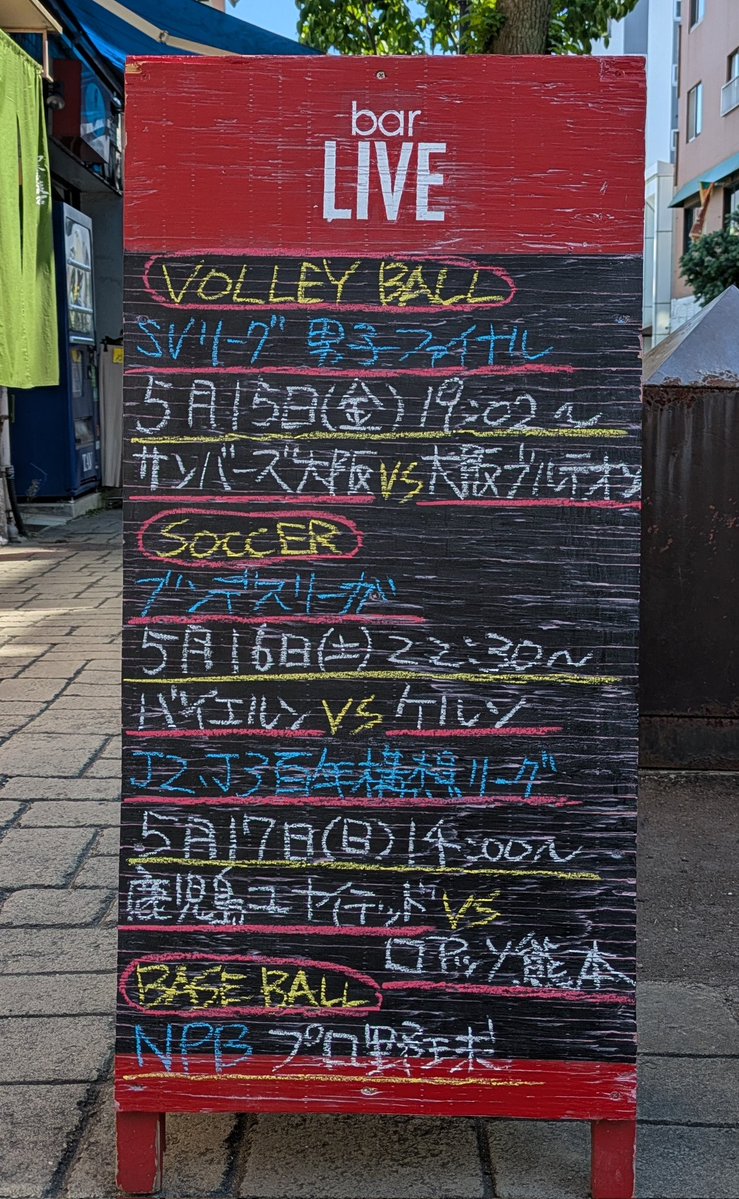 bar
LIVE
VOLLEY BALL
SVリーグ 男子ファイナル
5月15日(金) 19:02~
サンバーズ大阪 VS 大阪ブルテオン
SOCCER
ブンデスリーガ
5月16日(土) 22:30~
バイエルン VS ケルン
J2.J3百年構想リーグ
5月17日(日) 14:00~
鹿児島ユナイテッド VS
ロアッソ熊本
BASE BALL
NPB プロ野球